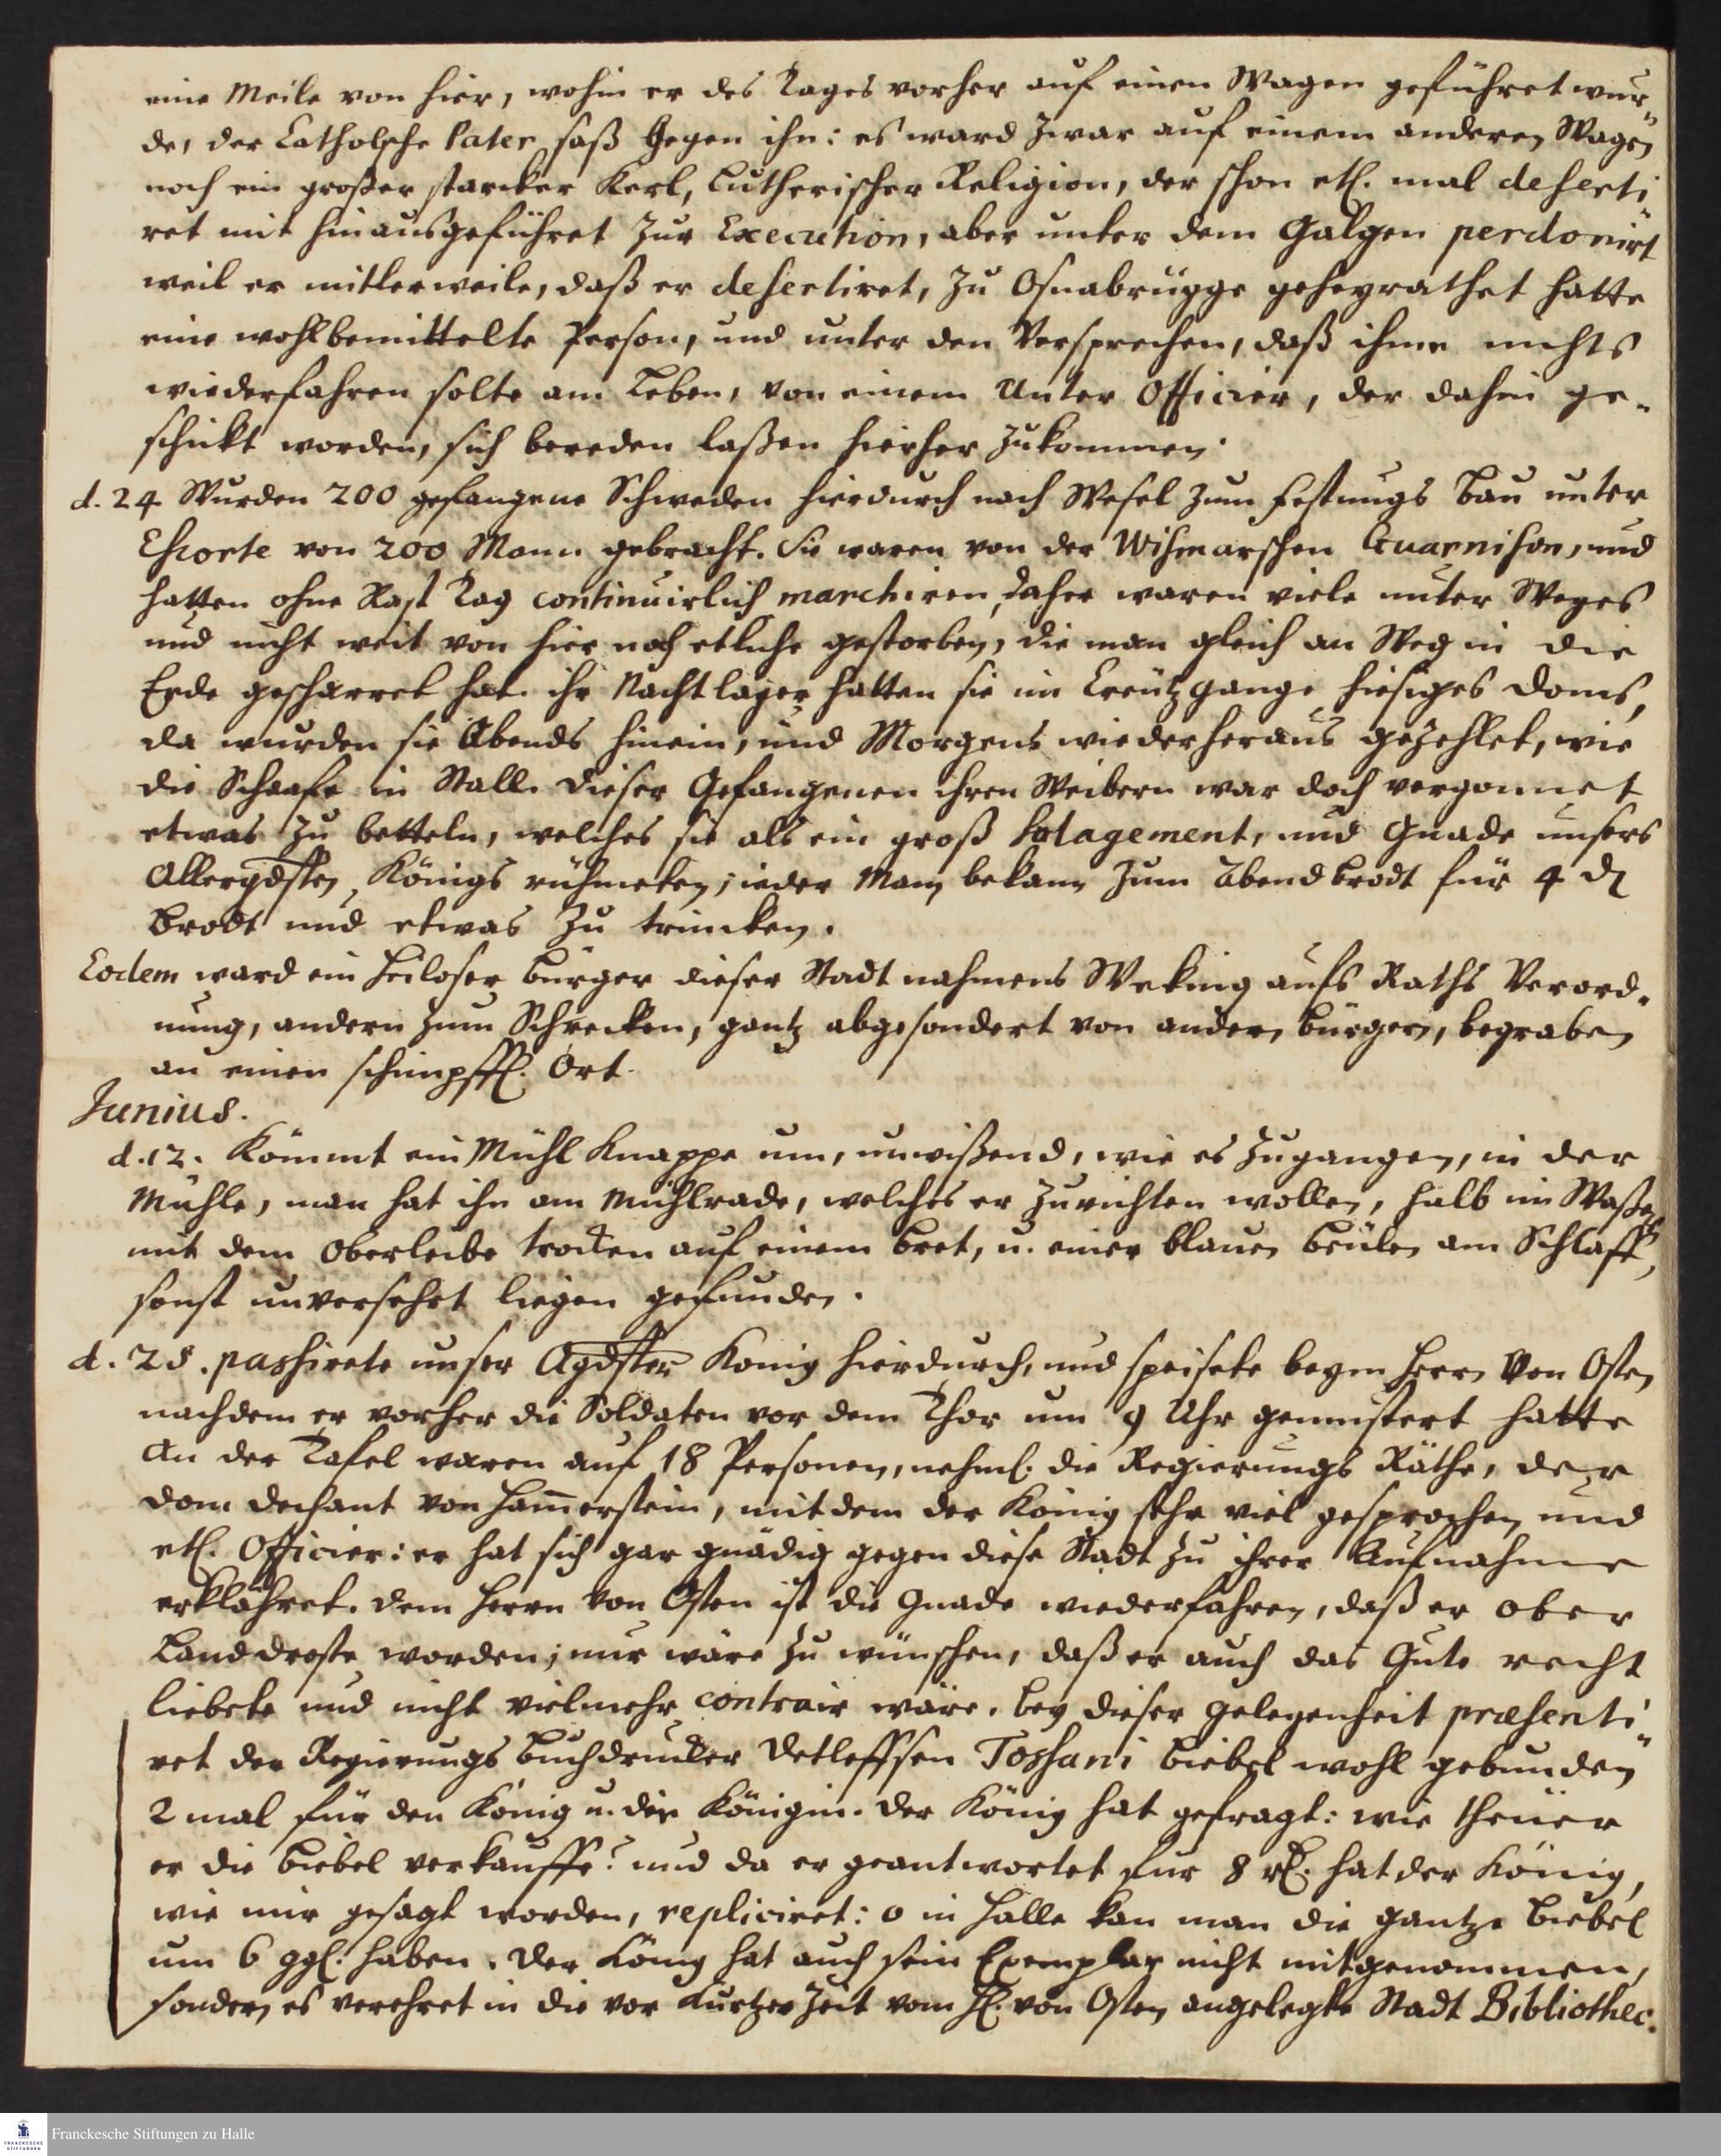 eine Meile von hier, wohin er des Tages vorher auf einen Wagen geführet wur„
de, der Catholsche Pater saß gegen ihn: es ward zwar auf einem anderen Wagen
noch ein großer starcker Kerl, Lutherischer Religion, der schon etl. mal deserti„
ret mit hinausgeführet zur Execution, aber unter dem Galgen perdonirt
weil er mitlerweile, daß er desertiret, zu Osnabrügge geheyrathet hatte
eine wohlbemittelte Person, und unter den Versprechen, daß ihme nichts
wiederfahren solte am Leben, von einem Unter Officier, der dahin ge„
schickt worden, sich bereden laßen hierher zukommen.
d. 24 Wurden 200 gefangene Schweden hierdurch nach Wesel zum Festungs Bau unter
Escorte von 200 Mann gebracht. Sie waren von der Wismarschen Guarnison, und
hatten ohne Rast Tag continuirlich marchiren, daher waren viele unter Weges
und nicht weit von hier noch etliche gestorben, die man gleich an Weg in die
Erde gescharret hat. ihr Nachtlager hatten sie im Creützgange hiesiges Doms,
da wurden sie Abends hinein, und Morgens wiederheraus gezehlet, wie
die Schaafe in Stall. Dieser Gefangenen ihren Weibern war doch vergonnet
etwas zu betteln, welches sie als ein groß Solagement, und Gnade unsers
Allergdsten Königs rühmeten; ieder Mann bekam zum Abendbrodt für 4 d
Brodt und etwas zu trincken.
Eodem ward ein heiloser Bürger dieser Stadt nahmens Weking aufs Raths Verord„
nung, andern zum Schrecken, gantz abgesondert von andern Bürgern, begraben
an einen schimpffl. Ort.
Junius.
d. 12. Kömmt ein Mühl Knappe um, unwißend, wie es zugangen, in der
Mühle, man hat ihn am Mühlrade, welches er zurichten wollen, halb im Waßer
mit dem Oberleibe trocken auf einem Bret, u. einer blauen Beülen am Schlaff,
sonst unversehrt liegen gefunden.
d. 28. passirete unser Agdster König hierdurch, und speisete beym Herrn Von Osten
nachdem er vorher die Soldaten vor dem Thor um 9 Uhr gemustert hatte
An der Tafel waren auf 18 Personen, nehml. die Regierungs Räthe, der
Dom Dechant von Hammerstein, mit dem der König sehr viel gesprochen und
etl. Officier: er hat sich gar gnädig gegen diese Stadt zu ihrer Aufnahme
erklähret. Dem Herrn von Osten ist die Gnade wiederfahren, daß er Ober
Landdroste worden; nur wäre zu wünschen, daß er auch das Gute recht
liebete und nicht vielmehr contrair wäre. Bey dieser Gelegenheit præsenti„
ret der Regierungs Buchdrucker Detleffsen Tossani Biebel wohl gebunden
2 mal für den König u. die Königin. Der König hat gefragt: wie theüer
er die Biebel verkauffe? und da er geantwortet für 8 rl. hat der König,
wie mir gesagt worden, repliciret: o in Halle kan man die gantze Biebel
um 6 ggl. haben. Der König hat auch sein Exemplar nicht mitgenommen,
sondern es verehret in die vor kurtzer Zeit vom H. von Osten angelegte Stadt Bibliothec.
Franckesche Stiftungen zu Halle